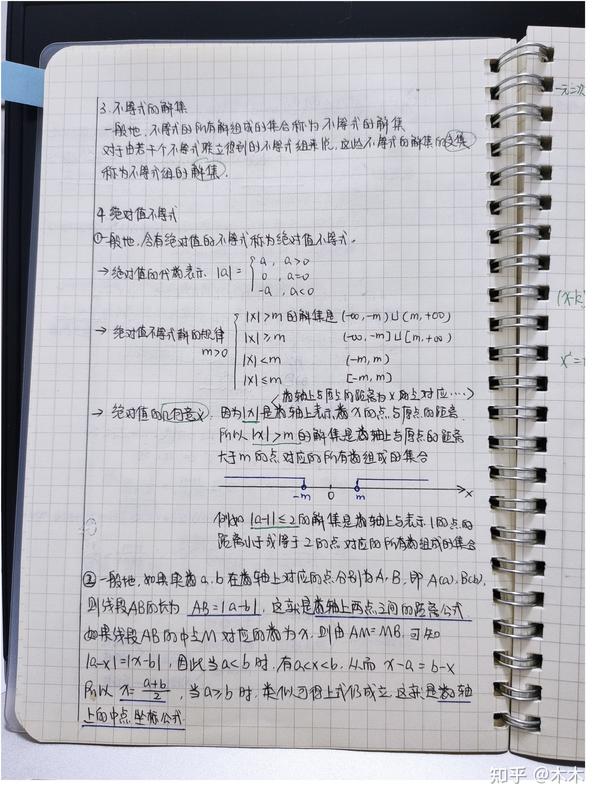 3. 不等式的解集
一般地, 不等式的所有解组成的集合称为不等式的解集
对于由若干个不等式联立得到的不等式组来说, 这些不等式的解集的交集
称为不等式组的解集.
4. 绝对值不等式
①一般地, 含有绝对值的不等式称为绝对值不等式.
→ 绝对值的代数表示 |a| = { a, a>0
0, a=0
-a, a<0
→ 绝对值不等式解的规律 m>0
|x|>m 的解集是 (-∞, -m)∪(m, +∞)
|x|≥m (-∞, -m]∪[m, +∞)
|x|<m (-m, m)
|x|≤m [-m, m]
<数轴上与原点的距离为x的点对应…>
→ 绝对值的几何意义. 因为|x|是数轴上表示数x的点与原点的距离.
所以|x|>m的解集是数轴上与原点的距离
大于m的点对应的所有数组成的集合
-m 0 m x
例如 |a-1|≤2的解集是数轴上与表示1的点的
距离小于或等于2的点对应的所有数组成的集合
② 一般地, 如果实数a, b在数轴上对应的点分别为A, B, 即 A(a), B(b),
则线段AB的长为 AB=|a-b|, 这就是数轴上两点之间的距离公式
如果线段AB的中点M对应的数为x, 则由AM=MB, 可知
|a-x|=|x-b|, 因此当a<b时, 有a<x<b, 从而 x-a=b-x
所以 x=a+b/2, 当a≥b时, 类似可得上式仍成立, 这就是数轴
上的中点坐标公式.
一元二次
(x-k)
x²=
知乎 @木木